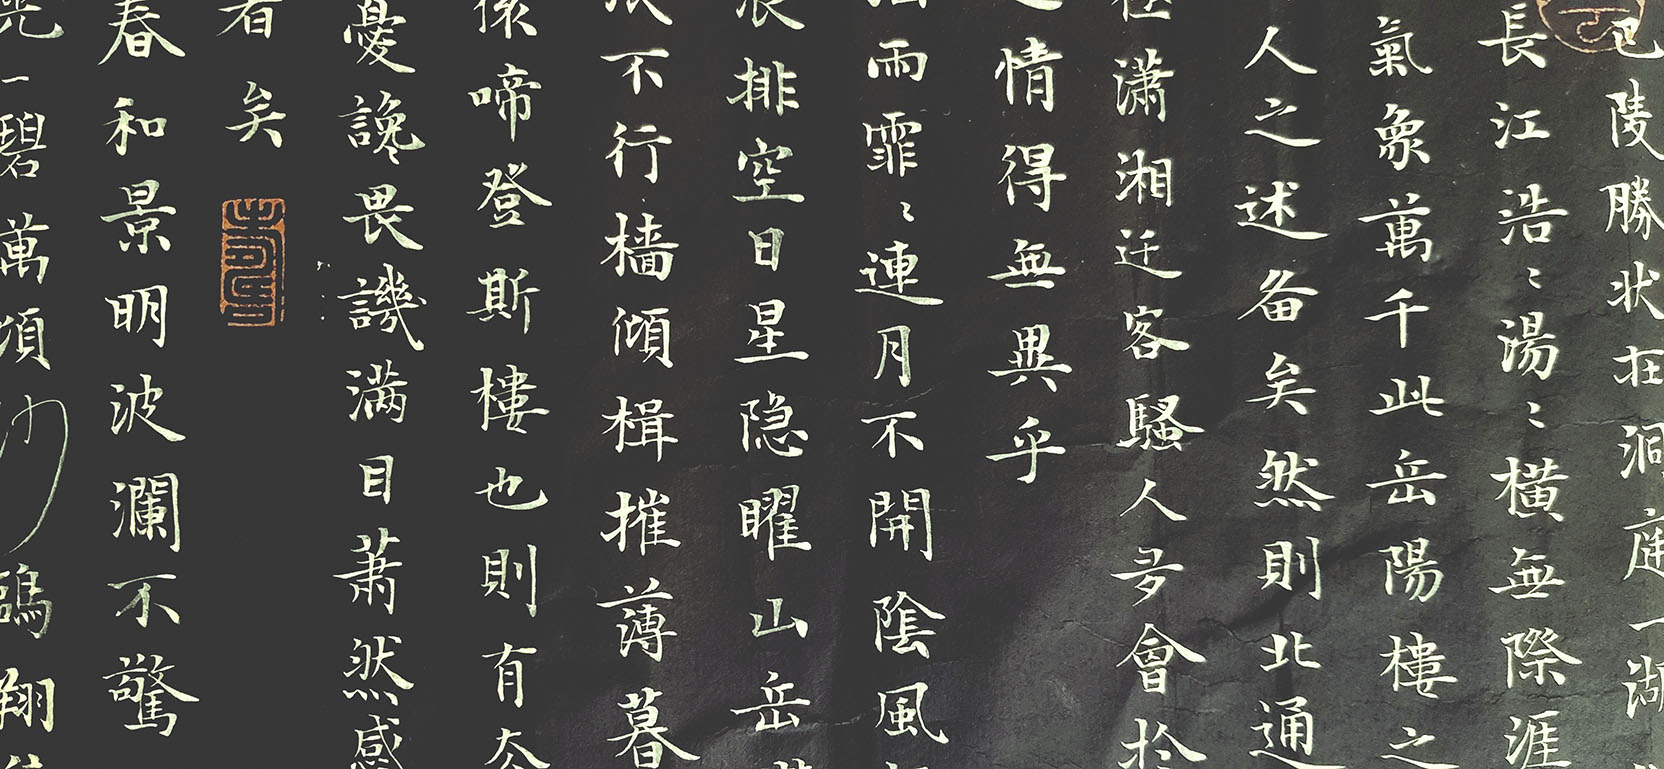 巴陵勝状在洞庭一湖
長江浩〻湯〻橫無際涯
氣象萬千此岳陽樓之
人之述备矣然則北通
極潇湘迁客騷人多會於
之情得無異乎
雨霏〻連月不開陰風
浪排空日星隐曜山岳
不行檣傾楫摧薄暮
猿啼登斯樓也則有去
憂讒畏譏满目萧然感
者矣
春和景明波瀾不驚
一碧萬頃沙鷗翔